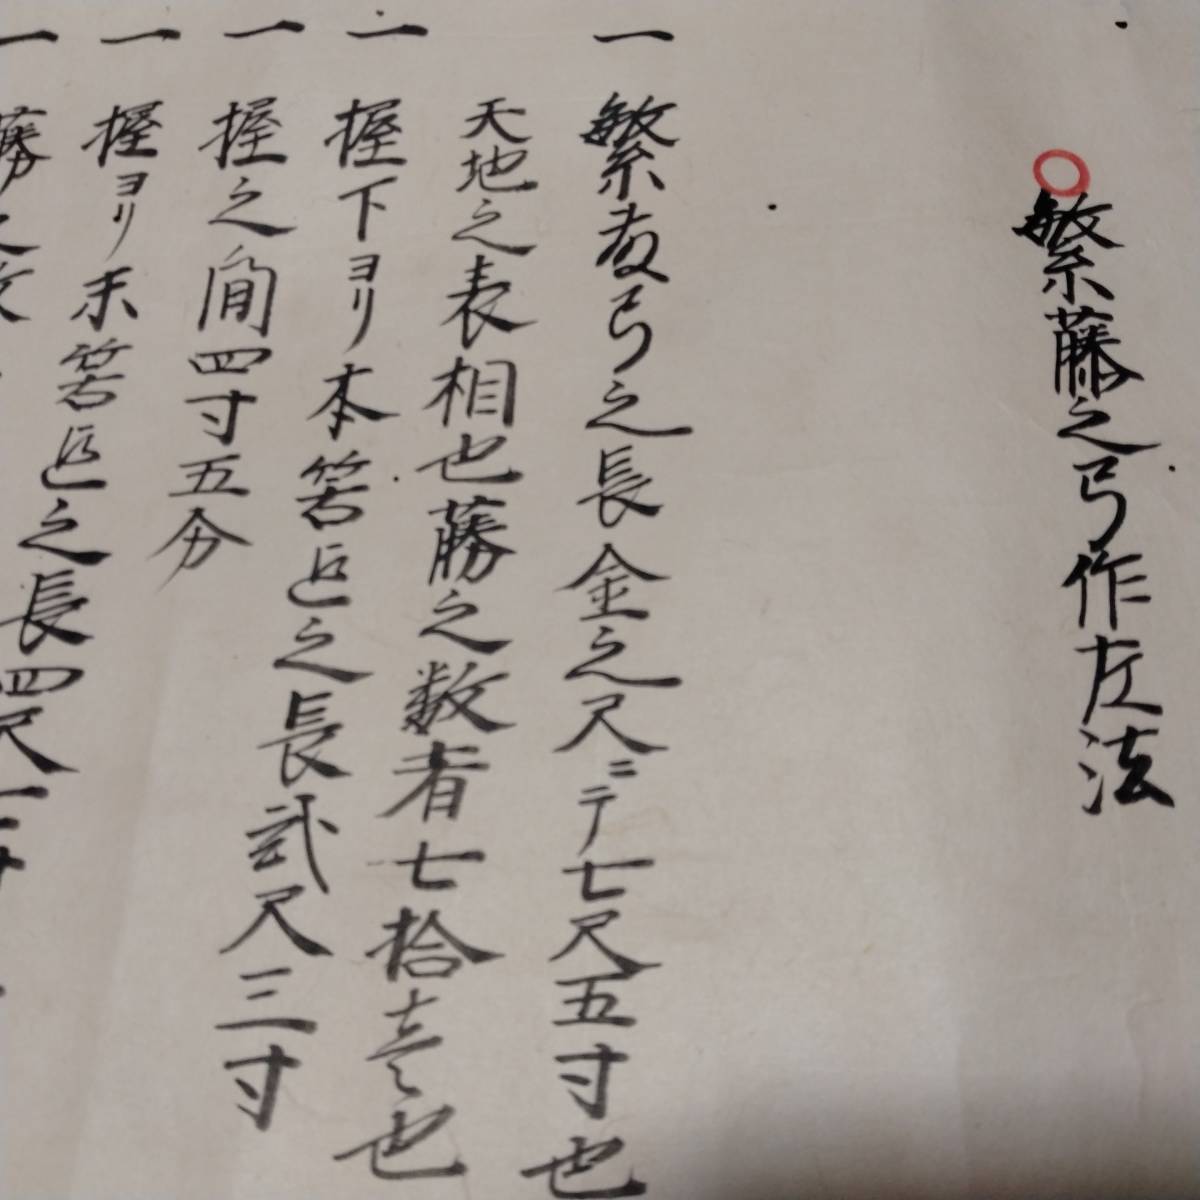 繁藤之弓作左法
一 繁藤弓之長金之尺ニテ七尺五寸也
天地之表相也藤之数者七拾壱也
一 握下ヨリ本筈迄之長弐尺三寸
一 握之間四寸五分
一 握ヨリ末筈迄之長四尺一寸
一 藤之数